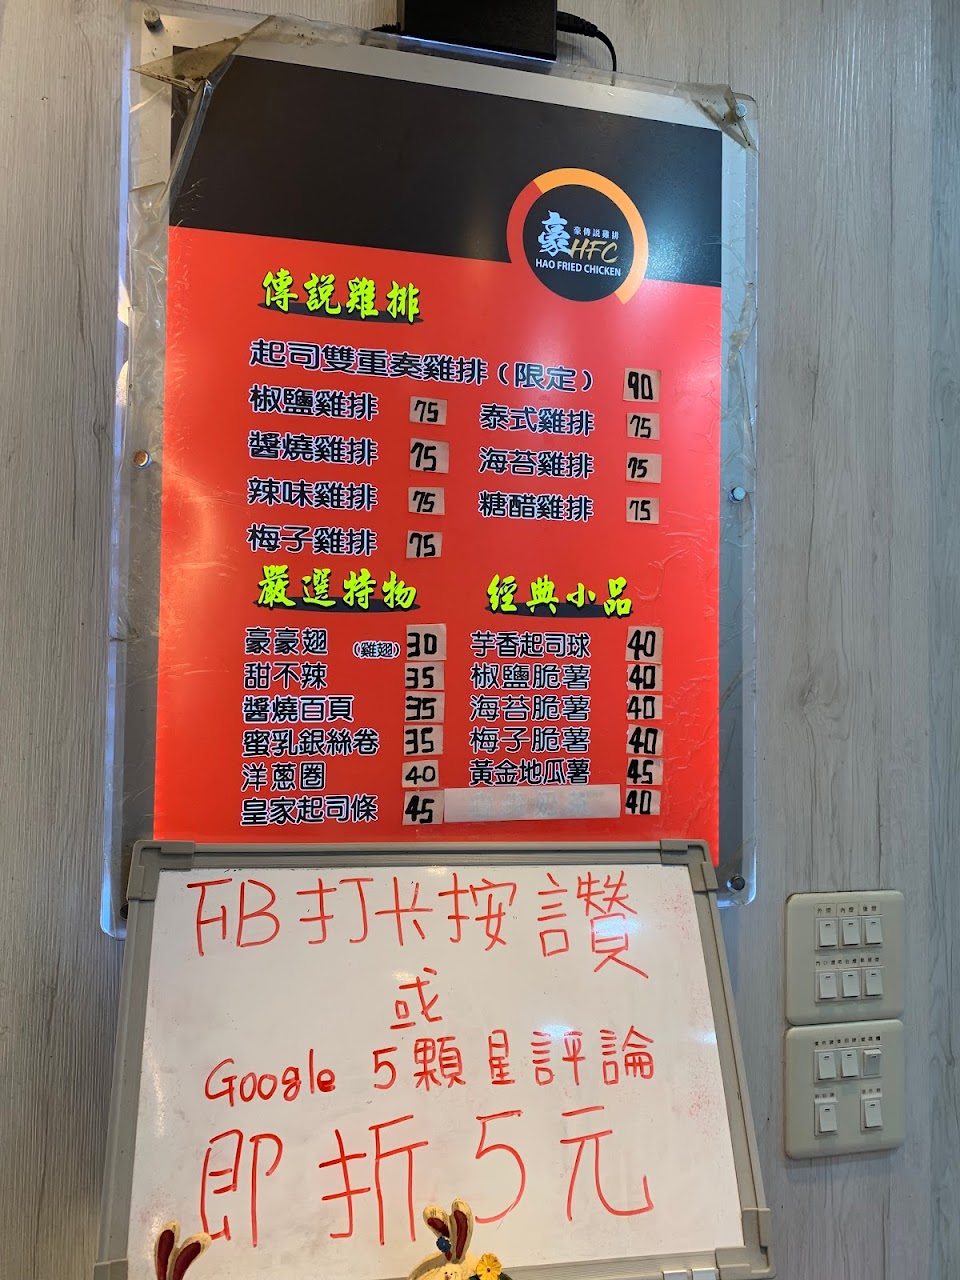 豪傳說雞排
豪HFC
HAO FRIED CHICKEN
傳說雞排
起司雙重奏雞排(限定) 90
椒鹽雞排 75
醬燒雞排 75
辣味雞排 75
梅子雞排 75
泰式雞排 75
海苔雞排 75
糖醋雞排 75
嚴選特物
豪豪翅(雞翅) 30
甜不辣 35
醬燒百頁 35
蜜乳銀絲卷 35
洋蔥圈 40
皇家起司條 45
經典小品
芋香起司球 40
椒鹽脆薯 40
海苔脆薯 40
梅子脆薯 40
黃金地瓜薯 45
40
FB打卡按讚
或
Google 5顆星評論
即折5元